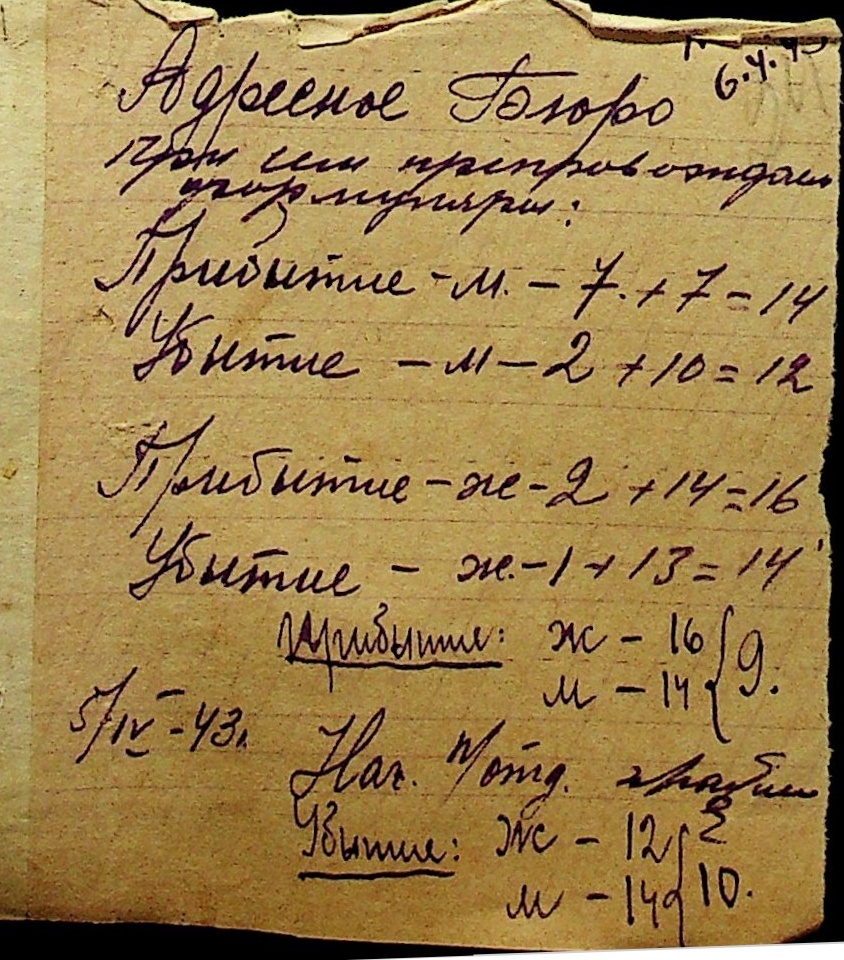 6.4.43
Адресное Бюро
При сем препровождаем
формуляры:
Прибытие - м. - 7. + 7 = 14
Убытие - м - 2 + 10 = 12
Прибытие - ж - 2 + 14 = 16
Убытие - ж. - 1 + 13 = 14
Прибытие: ж - 16
м - 14 } 9.
5/IV - 43 г.
Нач. п/отд.
Убытие: ж - 12
м - 14 } 10.